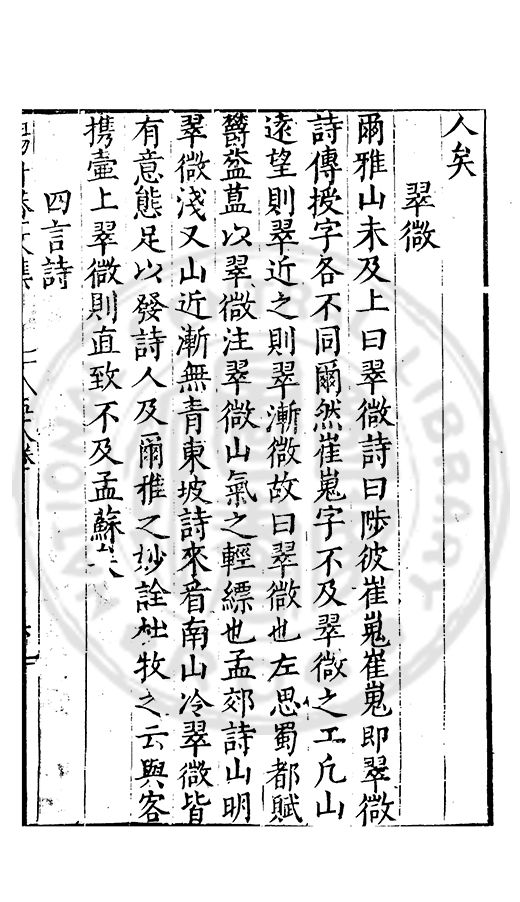 人矣
翠微
爾雅山未及上曰翠微詩曰陟彼崔嵬崔嵬即翠微
詩傳授字各不同爾然崔嵬字不及翠微之工凡山
遠望則翠近之則翠漸微故曰翠微也左思蜀都賦
鬱葐蒀以翠微注翠微山氣之輕縹也孟郊詩山明
翠微淺又山近漸無青東坡詩來看南山冷翠微皆
有意態足以發詩人及爾雅之妙詮杜牧之云與客
携壷上翠微則直致不及孟蘇矣
四言詩
NATIONAL LIBRARY